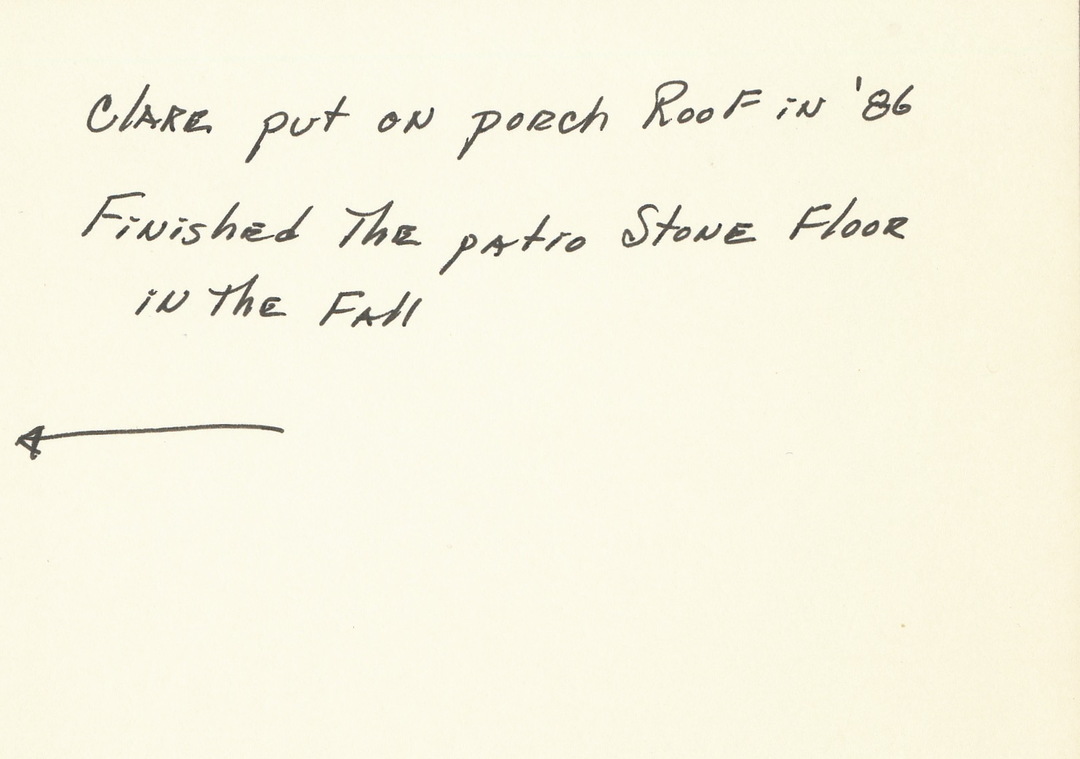 Clare put on porch Roof in '86
Finished The patio Stone Floor
in The Fall